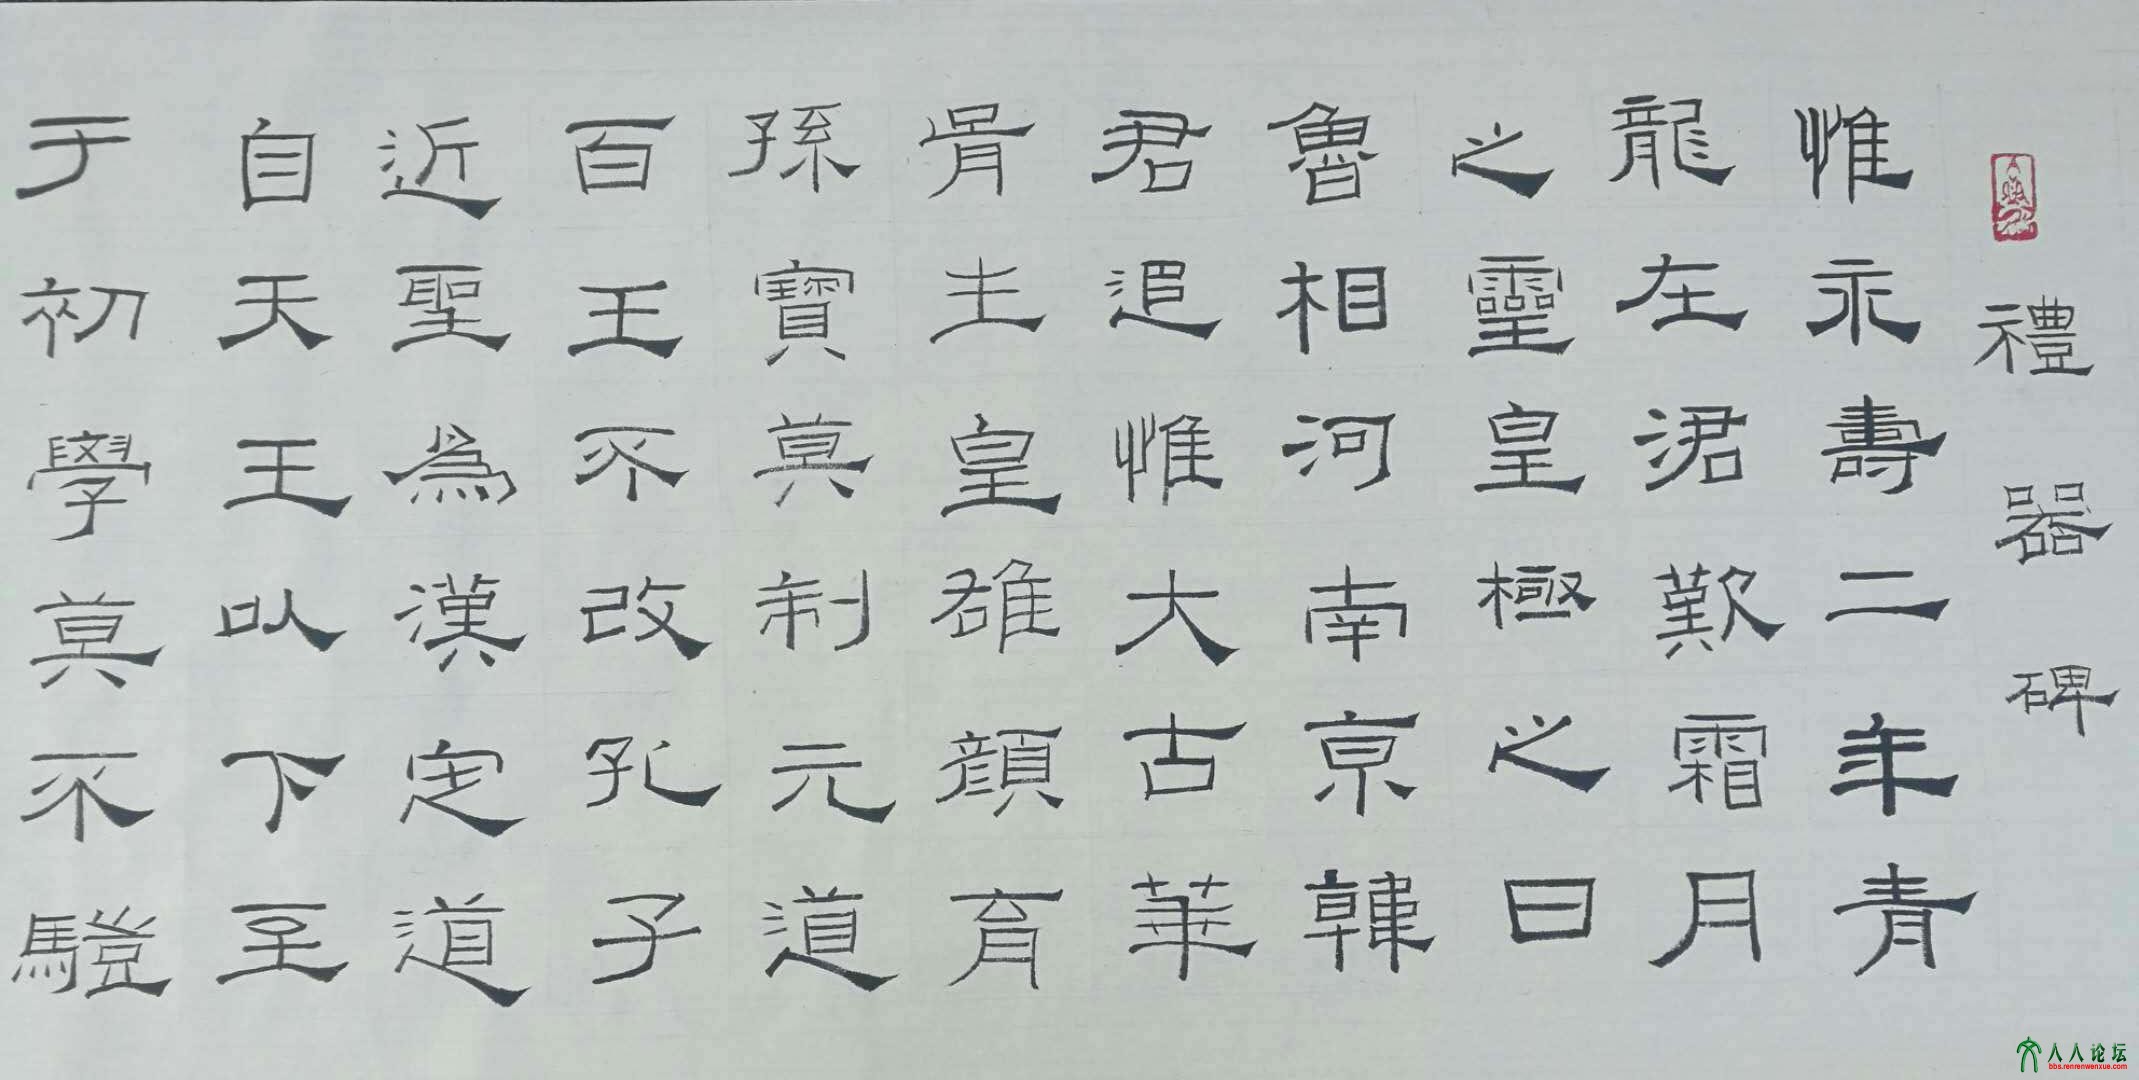 禮器碑
惟永壽二年青
龍在涒歎霜月
之靈皇極之日
魯相河南京韓
君追惟大古華
胥生皇雄顏育
孫寶莫制元道
百王不改孔子
近聖為漢定道
自天王以下至
于初學莫不
人人论坛
bbs.renrenwenxue.com